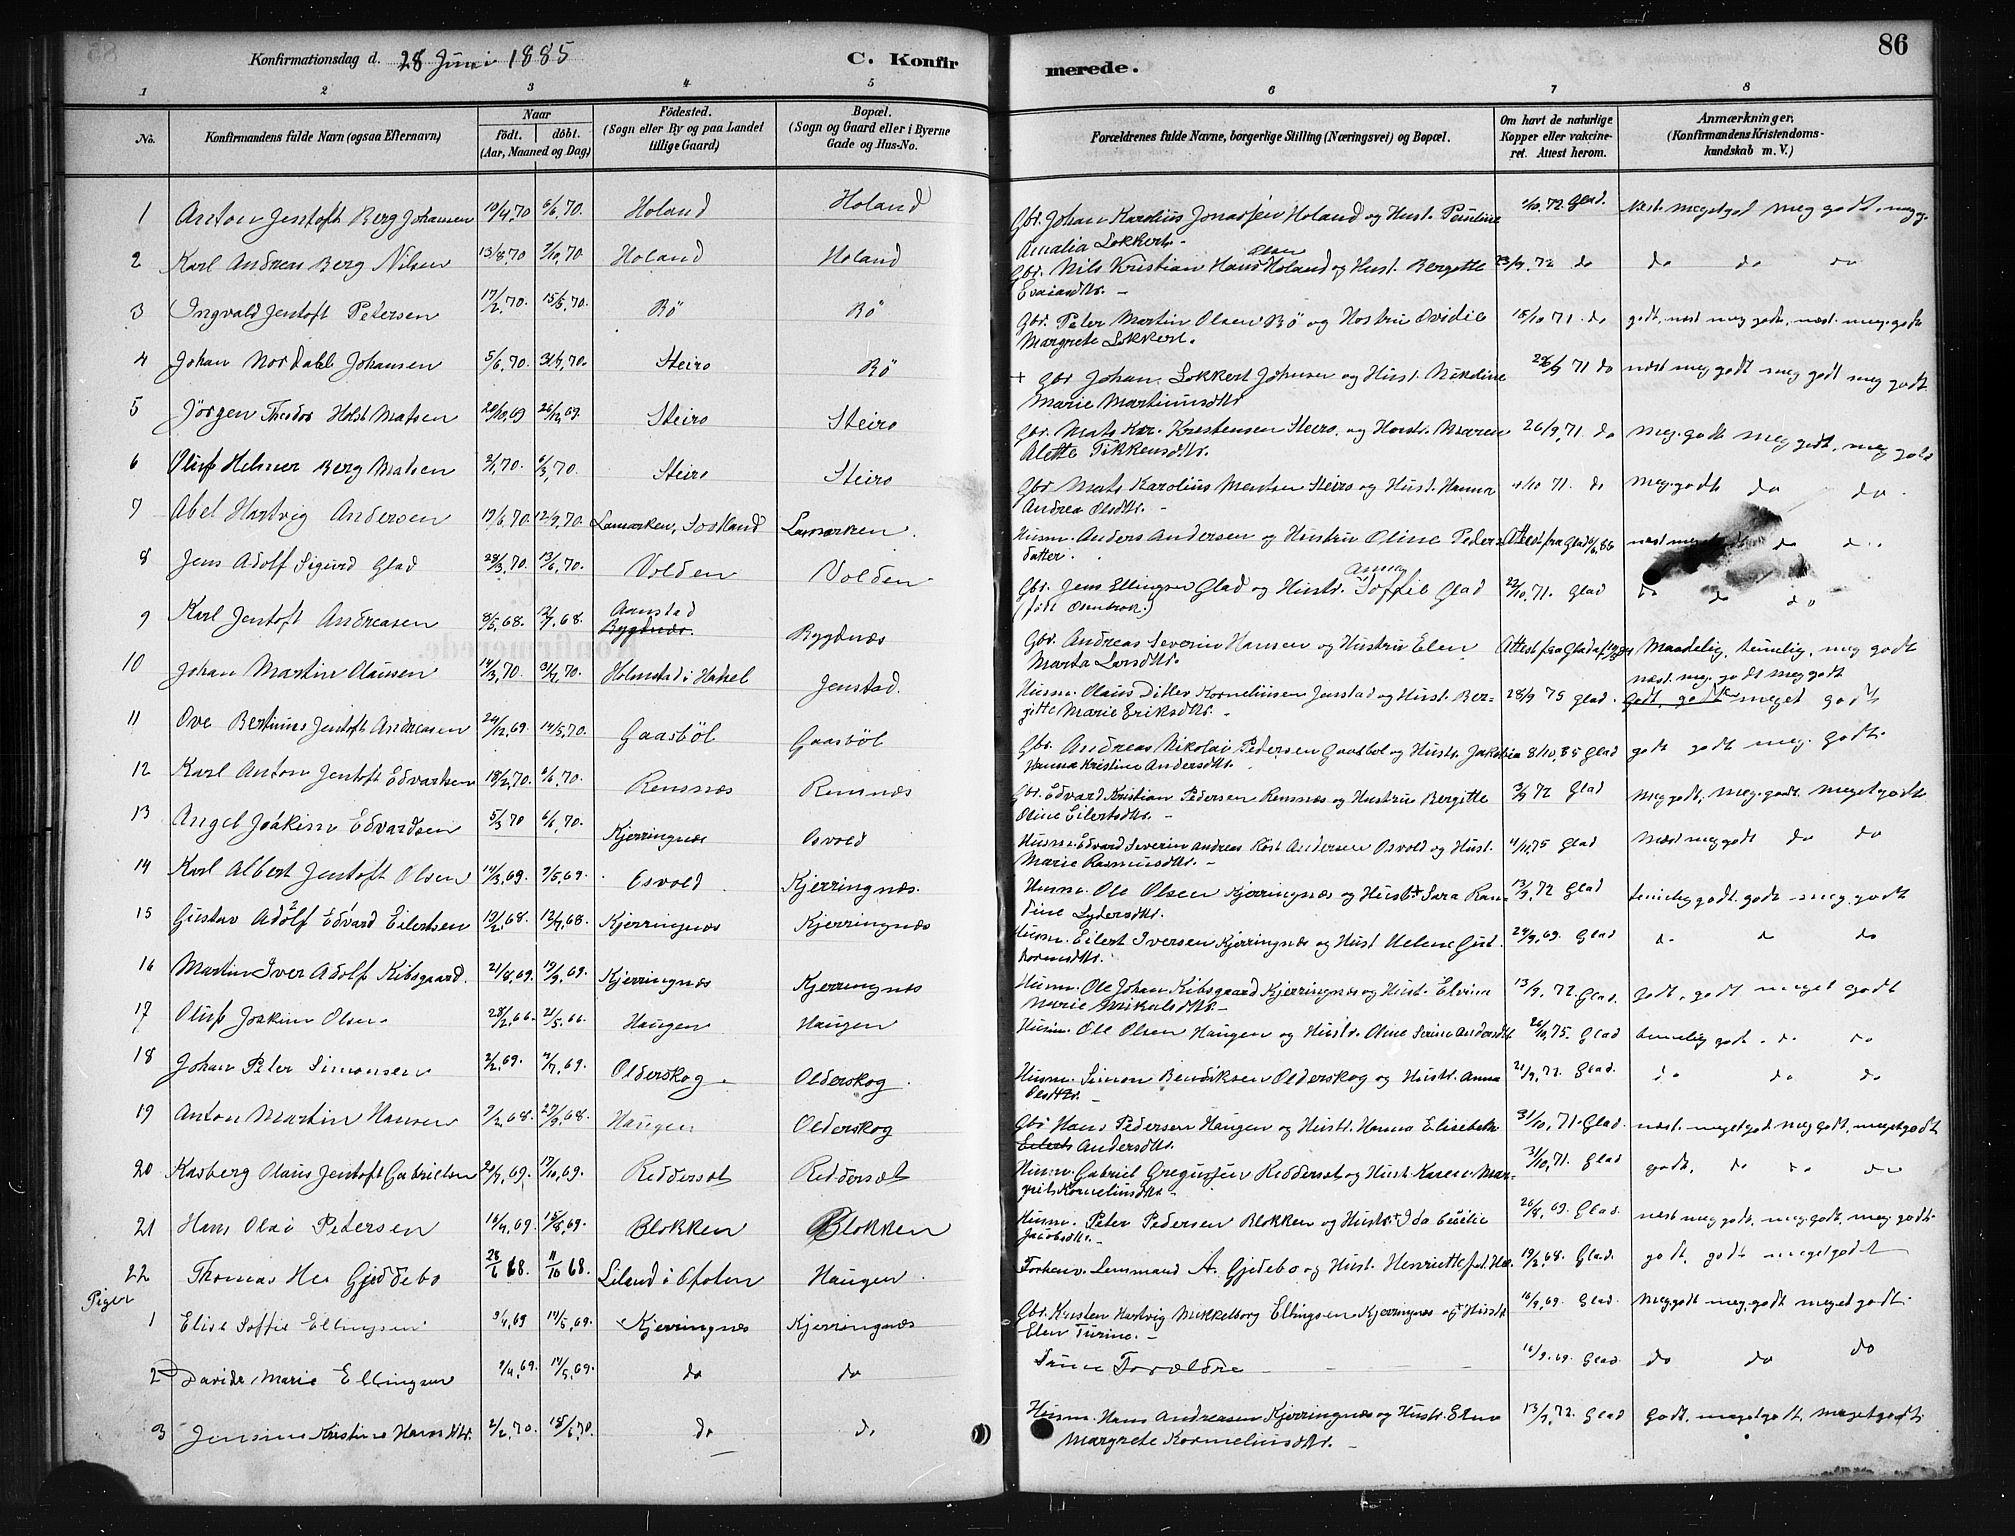 Konfirmationsdag d. 28 Juni 1885 C. Konfirmerede. 86
1 2 3 4 5 6 7 8
No. Konfirmandens fulde Navn (ogsaa Efternavn) Naar født. døbt. (Aar, Maaned og Dag) Fødested. (Sogn eller By og paa Landet tillige Gaard) Bopæl. (Sogn og Gaard eller i Byerne Gade og Hus-No. Forældrenes fulde Navne, borgerlige Stilling (Næringsvei) og Bopæl. Om havt de naturlige Kopper eller vakcineret. Attest herom. Anmærkninger, (Konfirmandens Kristendomskundskab m. V.)
1 Anton Jentoft Berg Johansen 10/4,70 6/6,70. Holand Holand Gbr. Johan Karolius Jonassen Holand og Hust. Pauline 72. Glad. Næst. megetgod meg godt
Amalia Lokkert. -
2 Karl Andreas Berg Nilsen 13/8,70 7/10,70 Holand Holand Gbr. Nils Kristian Hans Olsen Holand og Hust. Bergette 23/9,72 do do do do
Esaiasdtr. -
3 Ingvald Jentoft Petersen 17/2,70. 15/5,70. Bö Bö Gbr. Peter Martin Olsen Bö og Hostru Ovidie 18/10 71. do godt, næst meg godt, næst. meg. godt
Margrete Lokkert.
4 Johan Nordahl Johansen 5/6,70 31/7,70. Steiro Bö + Gbr Johan Lokkert Johnsen og Hust. Nikoline 71 do næst meg godt meg godt meg godt
Marie Martinusdtr
5 Jörgen Theodor Holst Matsen 20/10,69 26/12,69. Steiro Steiro Gbr. Mats Kar. Kristensen Steiro. og Hust. Maren 26/9,71. do meg. godt meg godt, meg godt
Alette Tikkensdtr.
6 Oluf Helmer Berg Matsen 2/1,70. 6/3,70. Steiro Steiro Gbr Mats Karolius Mentsen Steiro og Hust. Hanna 71. do Meg. godt do do
Andrea Olsdtr. -
7 Abel Hartvig Andersen 19/6,70. 12/9,70. Lamarken, Sortland Lamarken. Husm. Anders Andersen og Hustru Oline Peders Attest fra Glad næst meget do do
datter.
8 Jens Adolf Sigurd Glad 28/3,70. 13/6,70. Volden Volden. Gbr. Jens Ellingsen Glad og Hustr. Anna Soffie Glad 22/10,71. Glad do do do
(født Osenbrok.)
9 Karl Jentoft Andreasen 8/5,68. 2/7,68. Aanstad Bygdnæs. Bygdnæs Gbr. Andreas Severin Hansen og Hustru Elen Attest fra Glad af Maadelig, temelig, meg godt
Marta Larsdtr.
10 Johan Martin Olausen 14/3,70. 31/7,70. Holmstad i Hadsel Jenstad. Husm. Olaus Ditlev Kornelinsen Jenstad og Hust. Ber- 28/9 75 Glad. næst. meg. godt meg godt
gitte Marie Eriksdtr. - godt, godt meget godt
11 Ove Bertinus Jentoft Andreasen 24/12,69 14/5,70. Gaasböl Gaasböl Gbr. Andreas Nikolai Pedersen Gaasböl og Hustr. Jakobia 8/10,85 Glad godt godt meg. godt.
Hanna Kristine Andersdtr.
12 Karl Anton Jentoft Edvardsen 18/2,70. 6/6,70. Remnæs Remnæs Gbr. Edvard Kristian Pedersen Remnæs og Hustru Bergitte 3/9 72 Glad Meg godt, meg. godt. megetgodt.
Oline Eilertsdtr. -
13 Angel Joakim Edvardsen 5/3 70 6/6,70. Kjerringnæs Osvold Husm. Edvard Severin Andreas Röst Andersen Osvold og Hust. 75 Glad Næst meg godt do do
Marie Rasmusdtr. -
14 Karl Albert Jentoft Olsen 14/3,69. 7/5,69. Osvold Kjerringnæs. Husm. Ole Olsen Kjerringnæs og Hust+ Sara Ran- 13/9,72 Glad temelig godt. godt - meg. godt
dine Lydersdtr.
15 Gustav Adolf Edvard Eilertsen 13/2,68. 12/7,68. Kjerringnæs Kjerringnæs Husm. Eilert Iversen Kjerringnæs og Hust Helene Gut- 24/9,69. Glad do do do
tormsdtr.
16 Martin Iver Adolf Kibsgaard. 21/8,69. 19/9,69. Kjerringnæs Kjerringnæs Husm. Ole Johan Kibsgaard Kjerringnæs og Hust. Elvina 13/9,72 Glad. godt, godt meget godt
Marie Mikalsdtr. -
17 Oluf Joakim Olsen 28/2,66. 21/5,66. Haugen Haugen Husm. Ole Olsen Haugen og Hustr. Oline Serine Andersdtr 75. Glad temelig godt. do do
18 Johan Peter Simonsen 2/2,69. 7/7,69. Olderskog. Olderskog. Husm. Simon Bendiksen Olderskog og Hustr. Anna 21/9,72. Glad. do do do
Olsdtr.
19 Anton Martin Hansen 7/2,68. 27/9,68. Haugen Olderskog Gbr Hans Pedersen Haugen og Hustr. Hanna Elisabeth 31/10,71. Glad. næst. megetgod. meg godt, megetgodt
Eilerts Andersdtr.
20 Kasberg Olaus Jentoft Gabrielsen 20/7,69. 17/10,69. Reddersæt Reddersæt Husm. Gabriel Gregussen Reddersæt og Hust. Karen Mar- 31/10,71. Glad godt, do do do
grete Kornelinsdtr. -
21 Hans Olai Petersen 16/4,69. 15/8,69. Blokken Blokken Husm. Peter Pedersen Blokken og Hustr+ Ida Cecilie 26/8,69. Glad. næst meg godt, meg. godt, meg godt.
Jacobsdtr. -
22 Thomas Hee Gjeddebo 28/6 68. 11/10 68. Liland i Ofoten Haugen. Forhenv. Lensmand A. Gjedebo og Hust. Henriette fød. Hee 19/2,68. Glad. godt, godt megetgodt
Piger
1 Elise Soffie Ellingsen 9/4,69 17/5,69. Kjerringnæs Kjerringnæs Gbr. Kristen Hartvig Mikkelborg Ellingsen Kjerringnæs og+ Hustr 16/9,69. Glad. Meg godt meg. godt meget godt.
Elen Turine. -
2 Davida Marie Ellingsen 9/4,69. 17/5,69. do do Samme Forældre 16/9.69. Glad. do do do
3 Jensine Kristine Hansdtr. 2/2,70. 18/6,70. do do Husm. Hans Andreasen Kjerringnæs og Hustr. Elna 13/9,72. Glad Godt. megetgodt, megetgodt.
Margrete Kornelinsdtr. -